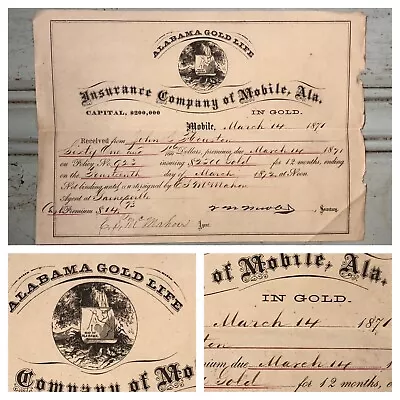 ALABAMA GOLD LIFE
Insurance Company of Mobile, Ala.
CAPITAL, $200,000 IN GOLD.
Mobile, March 14 1871
Received from John C Houston
Sixty One and Dollars, premium due March 14 1871
on Policy No. 923 insuring $2500 Gold for 12 months, ending
on the Fourteenth day of March 1872, at Noon
Not binding until countersigned by C F McMahon
Agent at Gainesville
Premium $14 Secretary
McMahon Agent
ALABAMA GOLD LIFE
Company of Mo
of Mobile, Ala.
IN GOLD.
March 14 1871
ton
mium, due March 14 1
Gold for 12 months, e